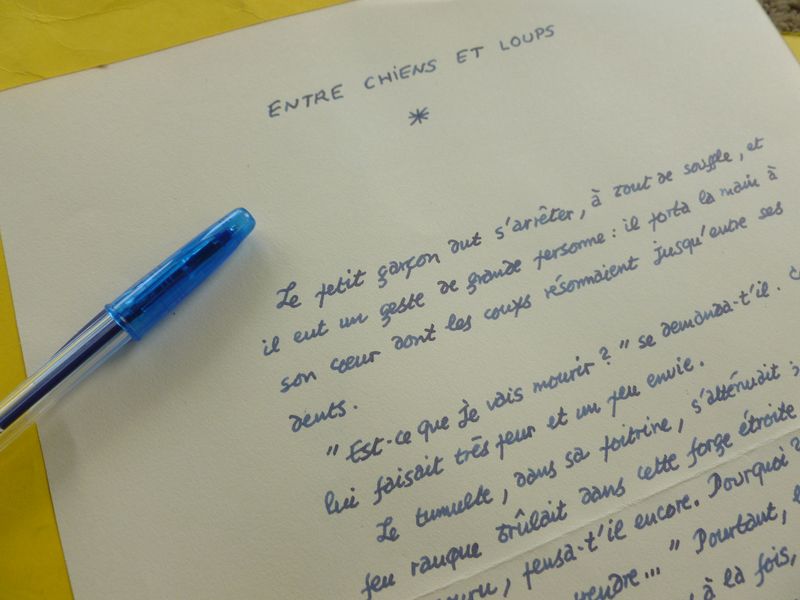 ENTRE CHIENS ET LOUPS
*
Le petit garçon dut s'arrêter, à bout de souffle, et
il eut un geste de grande personne : il porta la main à
son cœur dont les coups résonnaient jusqu'entre ses
dents.
" Est-ce que je vais mourir ? " se demanda-t'il.
lui faisait très peur et un peu envie.
Le tumulte, dans sa poitrine, s'atténuait ;
feu rauque brûlait dans cette forge étroite
pensa-t'il encore. Pourquoi
... " Pourtant,
à la fois,